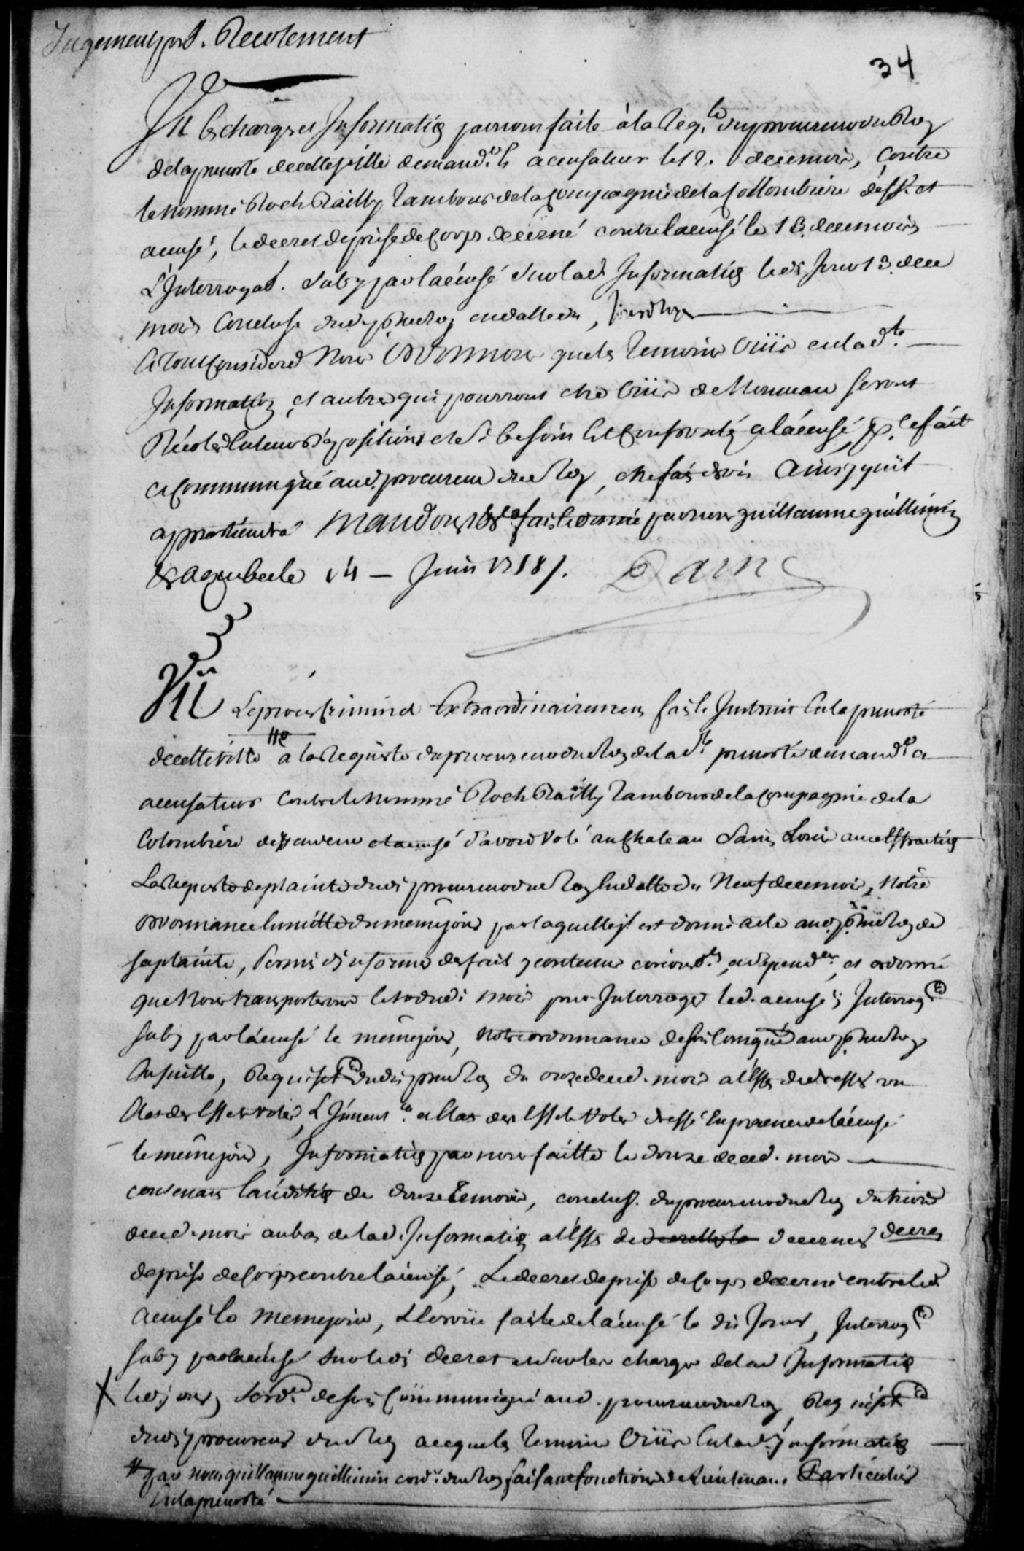 Jugement p.r Recolement
34
Vu les charges et Informaõn par nous faite à la Req.te du procureur du Roy
de la prevosté de cette ville demand.r et accusateur le 12. decemois, Contre
le nommé Roch Railly Tambour de la Compagnie de la Collombiere deff.r et
accusé, le decret de prise de Corps decerné contre l'accusé le 13. decemois
L'Interrogat. suby par l'accusé sur lad. Informaõn led. Jour 13. dece
mois Conclus. dud. pr du Roy en datte du
Le tout Consideré Nous Ordonnons que les Temoins Oüis en lad.te
Information, et autres qui pourront etre Oüis de Nouveau seront
Recolés en leurs depositions et si besoin est Confrontés a l'accusé, p.r ce fait
et Communiqué aud. procureur du Roy, etre fait droit Ainsy quil
appartiendra Mandons &c fait et donné par nous guillaume guillimin
&c a quebec le 14 Juin 17
Vû Le procés Criminel Extraordinairement fait et Instruit en la prevosté
de cette ville # à la Requeste du procureur du Roy de lad.te prevosté demand.r et
accusateur Contre le nommé Roch Railly Tambour de la Compagnie de la
Colombiere deffendeur et accusé d'avoir volé au Chateau Saint Louis avec effraction
La Requeste de plainte dud. procureur du Roy En datte du Neuf decemois, Notre
Ordonnance Ensuitte du meme jour par laquelle il est donné acte aud. pr du Roy de
sa plainte, Permis d'informer des faits y contenus circonst.es et dependces, et ordonné
que Nous transporterons le dud. mois pour Interroger led. accusé; Interrog.re
suby par l'accusé le même jour, Notre ordonnance de soit Comqué aud. pr du Roy
Ensuitte, Requisit.re dud. pr du Roy du onze decd. mois a l'effet de dresser un
Etat des Effets volés, L'Etat des Effets Volés dressé En presence de l'accusé
le même jour, Informaõn par nous faitte le douze decd. mois
contenant l'audition de douze Temoins, conclus. du procureur du Roy du treize
decd. mois au bas de lad. Informaõn a l'effet de decerner decret
de prise de Corps contre l'accusé, Le decret de prise de Corps decerné contre led.
accusé le meme jour, L'ecroüe faite de l'accusé le dit Jour, Interrog.re
suby par l'accusé sur led. decret et sur les charges de lad. Informaõn
led. jour, l'ord.e de soit Communiqué aud. procureur du Roy, Requisit.re
dud. procureur du Roy a ce que les Temoins Oüis En lad. Informaõn
# par nous guillaume guillimin cons.r du Roy faisant fonctions de Lieutenant Particulier
En la prevosté